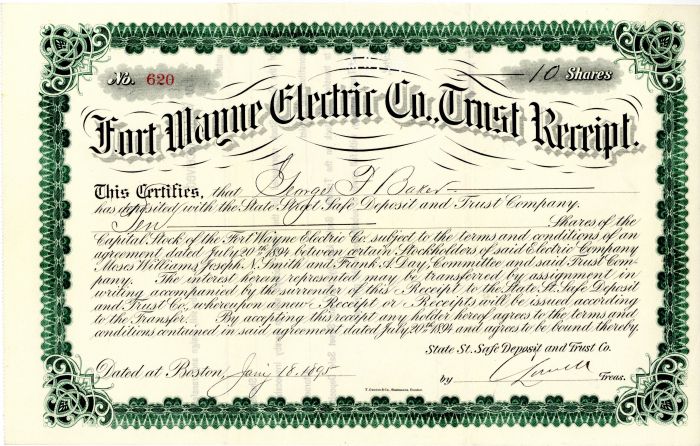 No. 620 10 Shares
Fort Wayne Electric Co., Trust Receipt.
This Certifies, that George F Baker
has deposited with the State Street Safe Deposit and Trust Company.
Ten Shares of the
Capital Stock of the Fort Wayne Electric Co. subject to the terms and conditions of an
agreement dated July 20th 1894 between certain Stockholders of said Electric Company
Moses Williams, Joseph N. Smith and Frank A. Day, Committee and said Trust Com-
pany. The interest herein represented may be transferred by assignment in
writing accompanied by the surrender of this Receipt to the State St. Safe Deposit
and Trust Co., whereupon a new Receipt or Receipts will be issued according
to the transfer. By accepting this receipt any holder hereof agrees to the terms and
conditions contained in said agreement dated July 20th 1894 and agrees to be bound thereby.
State St. Safe Deposit and Trust Co.
Dated at Boston, Jany 18, 1895 by Treas.